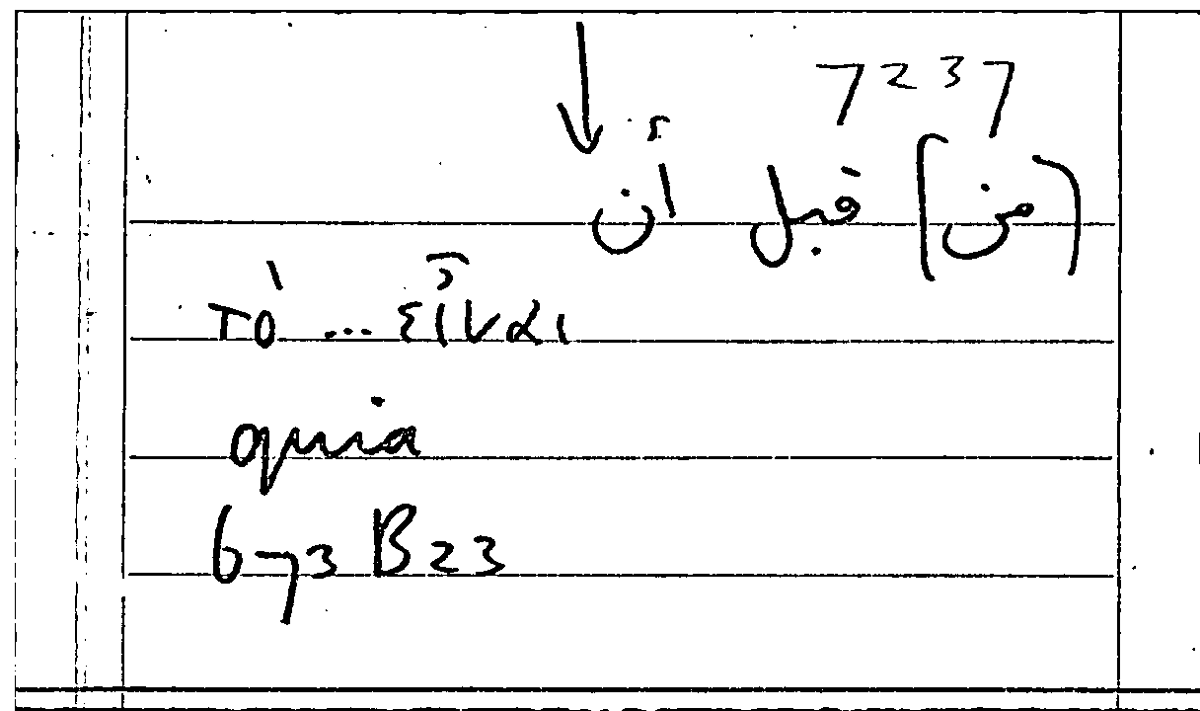 7237
↓
(من) قبل أن
τὸ ... εἶναι
quia
673 B23